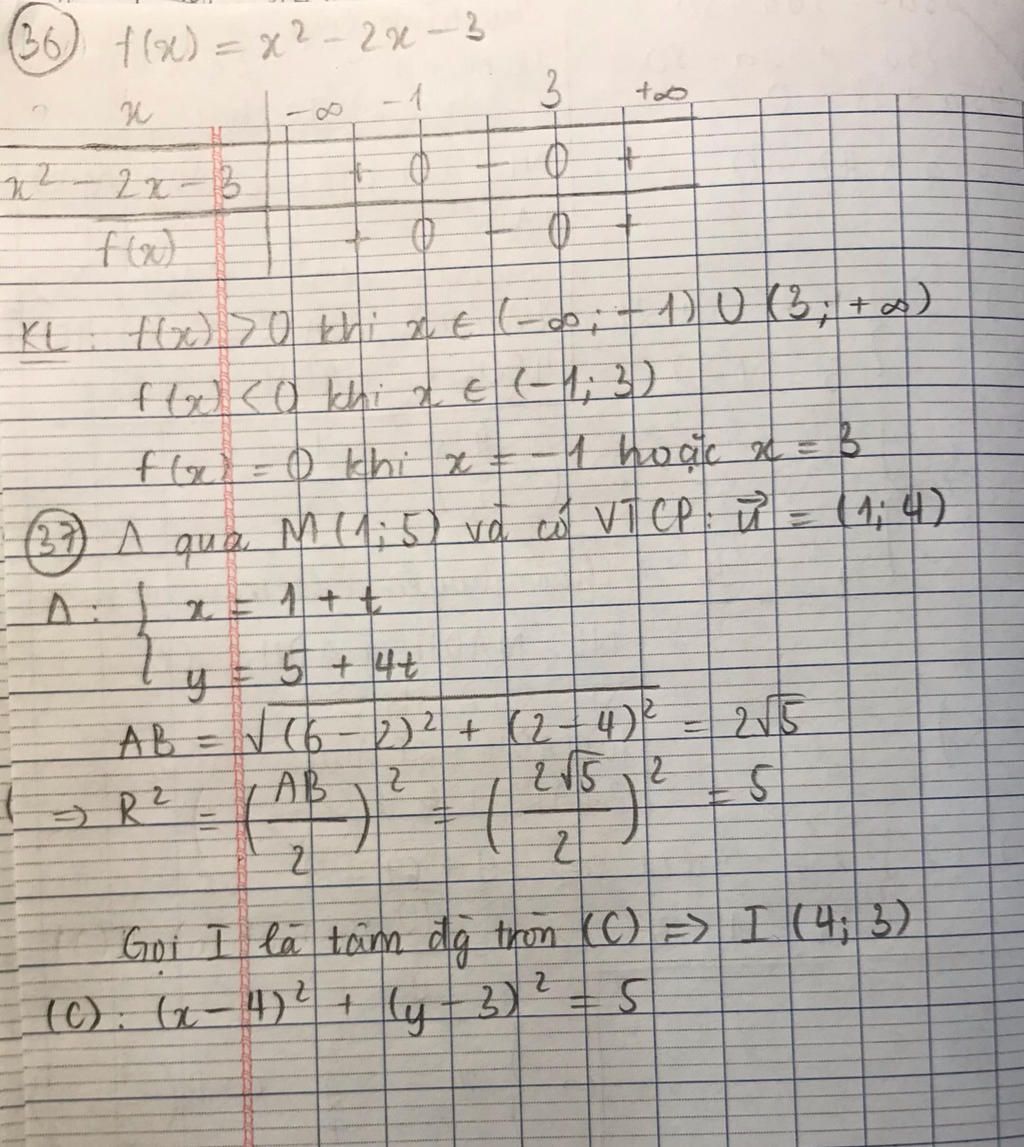 36 f(x) = x² - 2x - 3
x -∞ -1 3 +∞
x² - 2x - 3 + 0 - 0 +
f(x) + 0 - 0 +
KL: f(x) > 0 khi x ∈ (-∞; -1) ∪ (3; +∞)
f(x) < 0 khi x ∈ (-1; 3)
f(x) = 0 khi x = -1 hoặc x = 3
37 Δ qua M(1;5) và có VTCP: u⃗ = (1; 4)
Δ: { x = 1 + t
y = 5 + 4t
AB = √((6-2)² + (2-4)²) = 2√5
=> R² = (AB/2)² = (2√5/2)² = 5
Gọi I là tâm đg tròn (C) => I (4; 3)
(C): (x-4)² + (y-3)² = 5